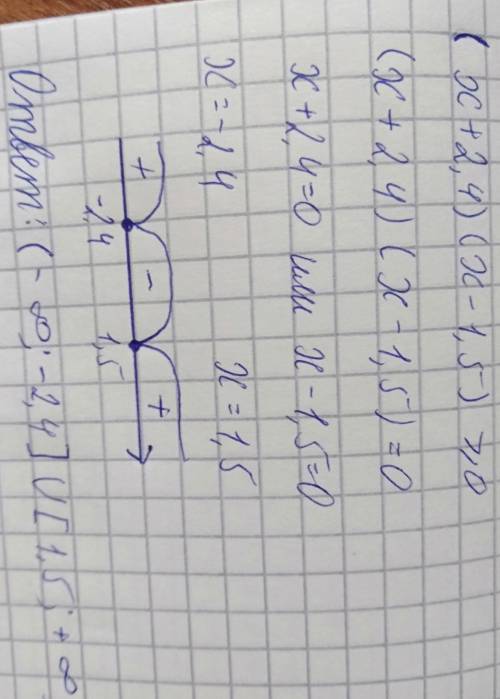 (x+2,4)(x-1,5)≥0
(x+2,4)(x-1,5)=0
x+2,4=0 или x-1,5=0
x=-2,4 x=1,5
+ - +
-2,4 1,5
Ответ: (-∞;-2,4]∪[1,5;+∞